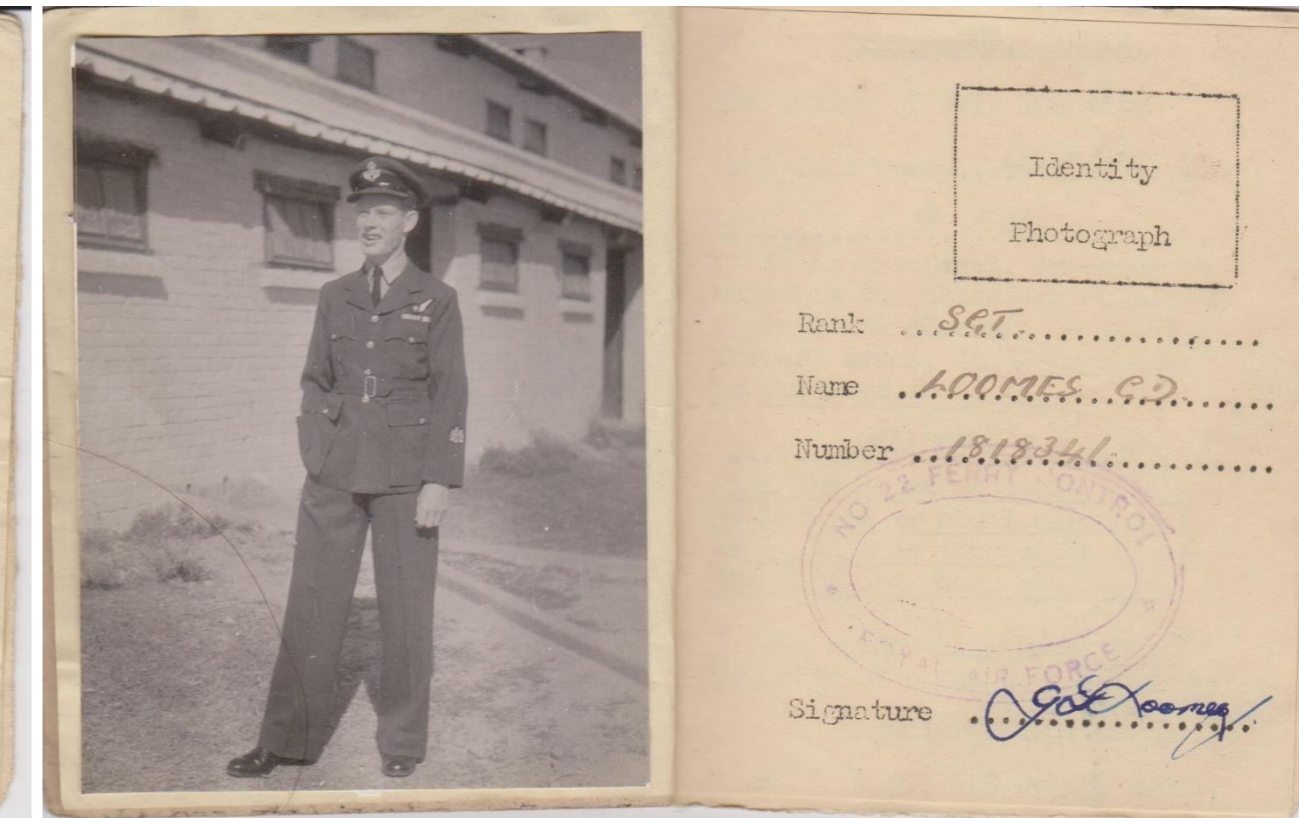 Identity
Photograph
Rank SGT.
Name LOOMES G.D.
Number 1818341.
NO 22 FERRY CONTROL
ROYAL AIR FORCE
Signature GD Loomes